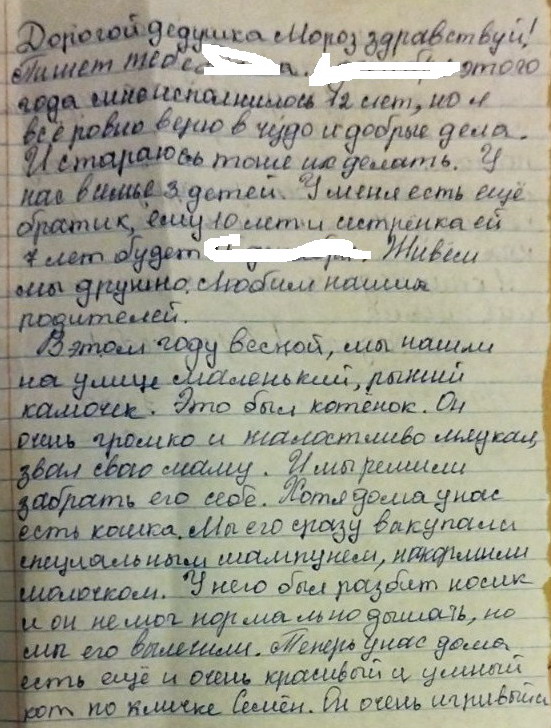 Дорогой дедушка Мороз здравствуй!
Пишет тебе этого
года мне исполнилось 12 лет, но я
всё ровно верю в чудо и добрые дела.
И стараюсь тоже их делать. У
нас в симье 3 детей. У меня есть ещё
братик, ему 10 лет и систрёнка ей
7 лет будет Живём
мы дружно. Любим наших
родителей.
В этом году весной, мы нашли
на улице маленький, рыжий
камочек. Это был котёнок. Он
очень громко и жалостливо мяукал,
звал свою маму. И мы решили
забрать его себе. Хотя дома у нас
есть кошка. Мы его сразу выкупали
специальным шампунем, накармили
молочком. У него был разбит носик
и он не мог нормально дышать, но
мы его вылечили. Теперь у нас дома
есть ещё и очень красивый и умный
кот по кличке Семён. Он очень игривый и